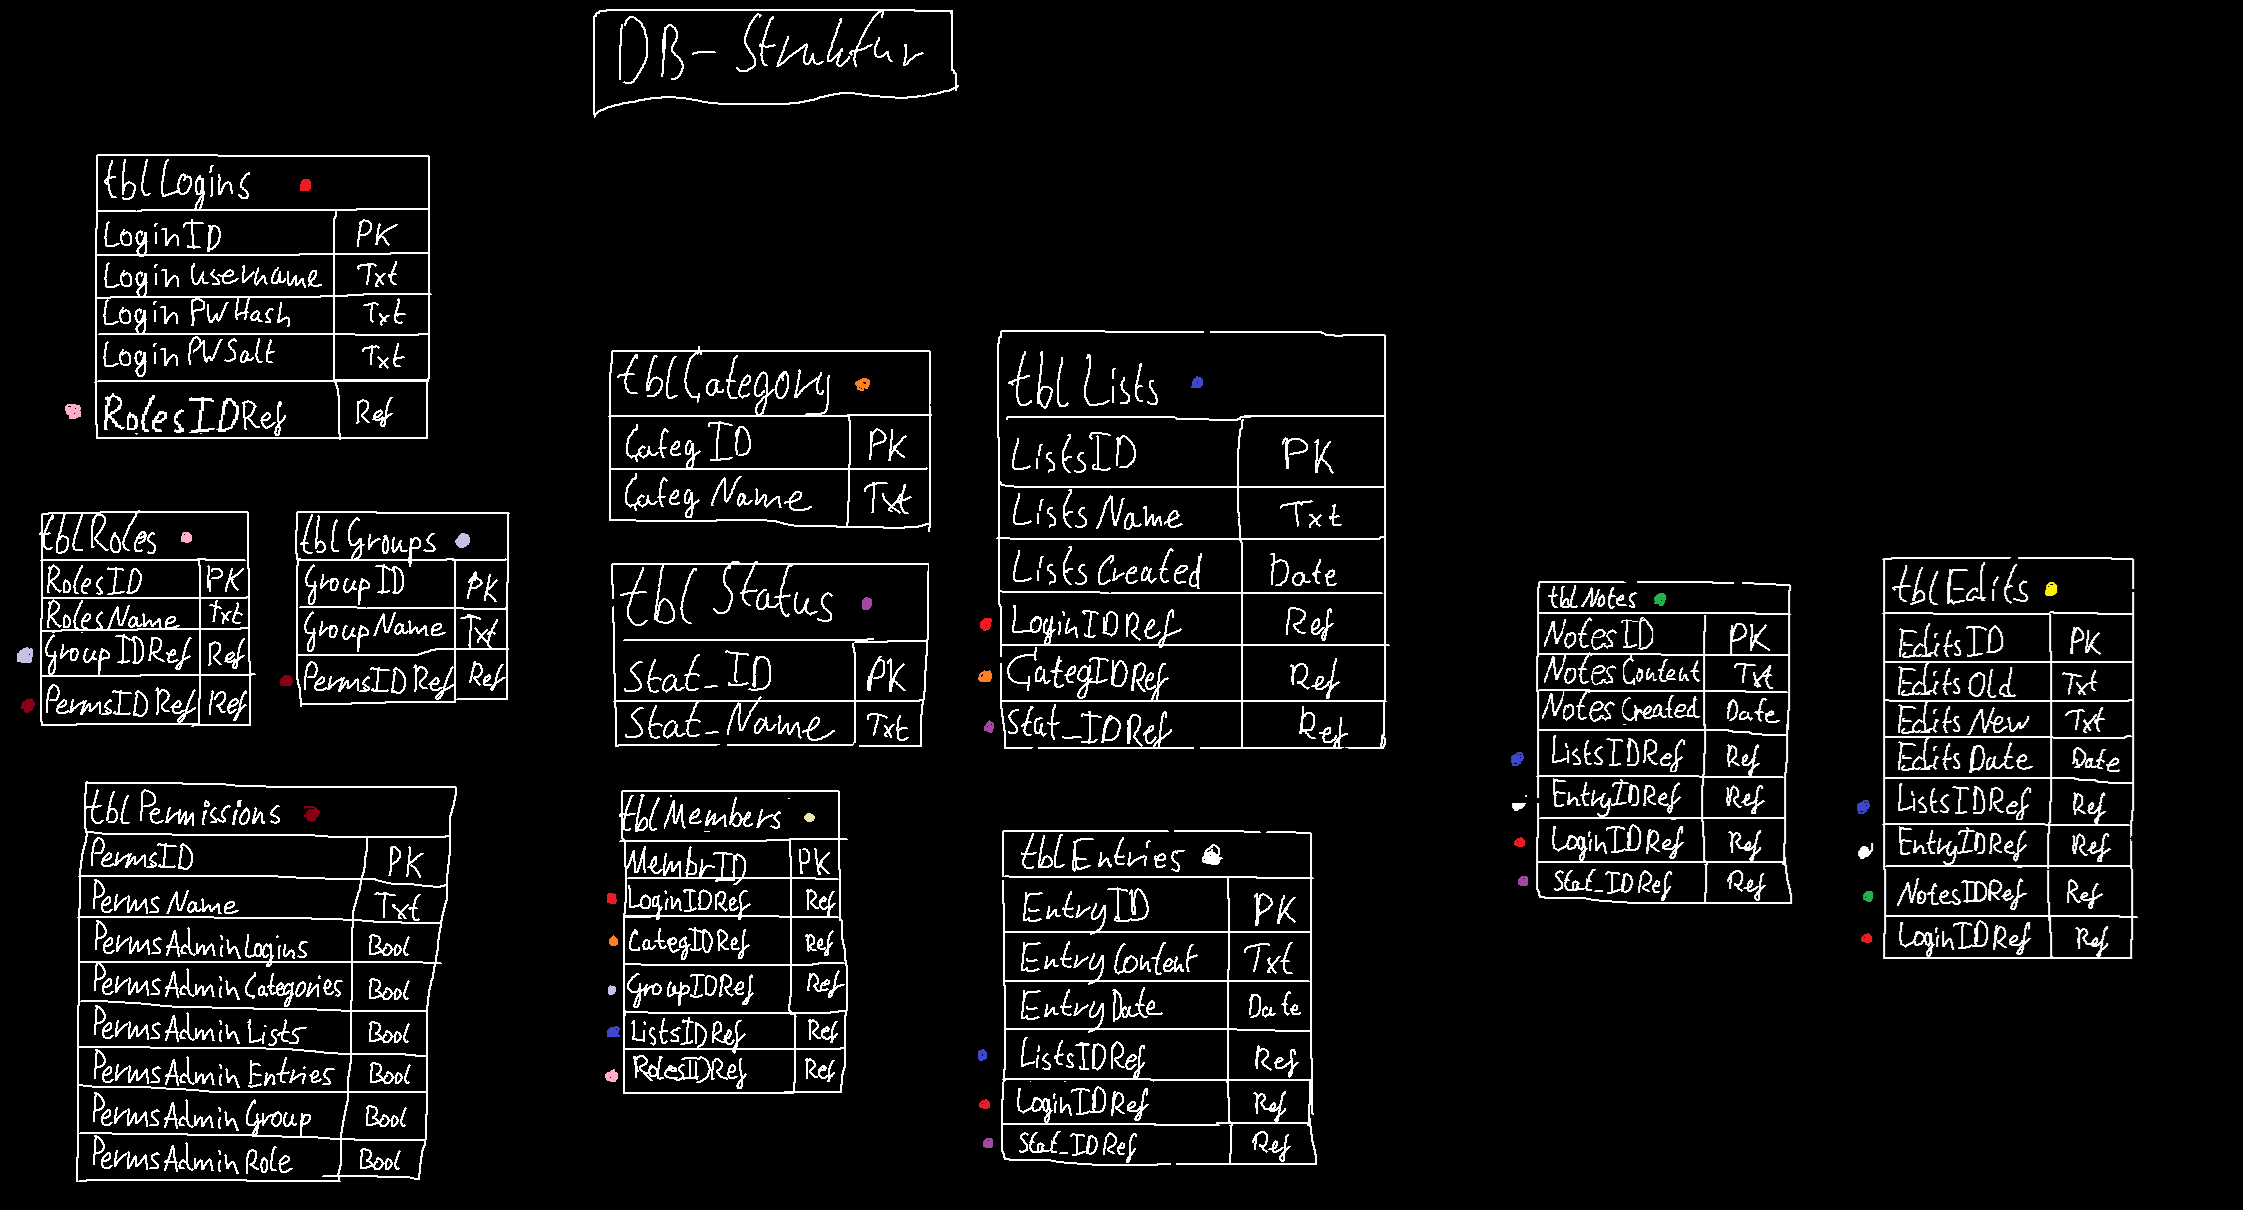 DB-Struktur
tblLogins
LoginID PK
LoginUsername Txt
LoginPWHash Txt
LoginPWSalt Txt
RolesIDRef Ref
tblRoles
RolesID PK
RolesName Txt
GroupIDRef Ref
PermsIDRef Ref
tblGroups
GroupID PK
GroupName Txt
PermsIDRef Ref
tblPermissions
PermsID PK
PermsName Txt
PermsAdminLogins Bool
PermsAdminCategories Bool
PermsAdminLists Bool
PermsAdminEntries Bool
PermsAdminGroup Bool
PermsAdminRole Bool
tblCategory
CategID PK
CategName Txt
tblStatus
Stat_ID PK
Stat_Name Txt
tblMembers
MembrID PK
LoginIDRef Ref
CategIDRef Ref
GroupIDRef Ref
ListsIDRef Ref
RolesIDRef Ref
tblLists
ListsID PK
ListsName Txt
ListsCreated Date
LoginIDRef Ref
CategIDRef Ref
Stat_IDRef Ref
tblEntries
EntryID PK
EntryContent Txt
EntryDate Date
ListsIDRef Ref
LoginIDRef Ref
Stat_IDRef Ref
tblNotes
NotesID PK
NotesContent Txt
NotesCreated Date
ListsIDRef Ref
EntryIDRef Ref
LoginIDRef Ref
Stat_IDRef Ref
tblEdits
EditsID PK
EditsOld Txt
EditsNew Txt
EditsDate Date
ListsIDRef Ref
EntryIDRef Ref
NotesIDRef Ref
LoginIDRef Ref